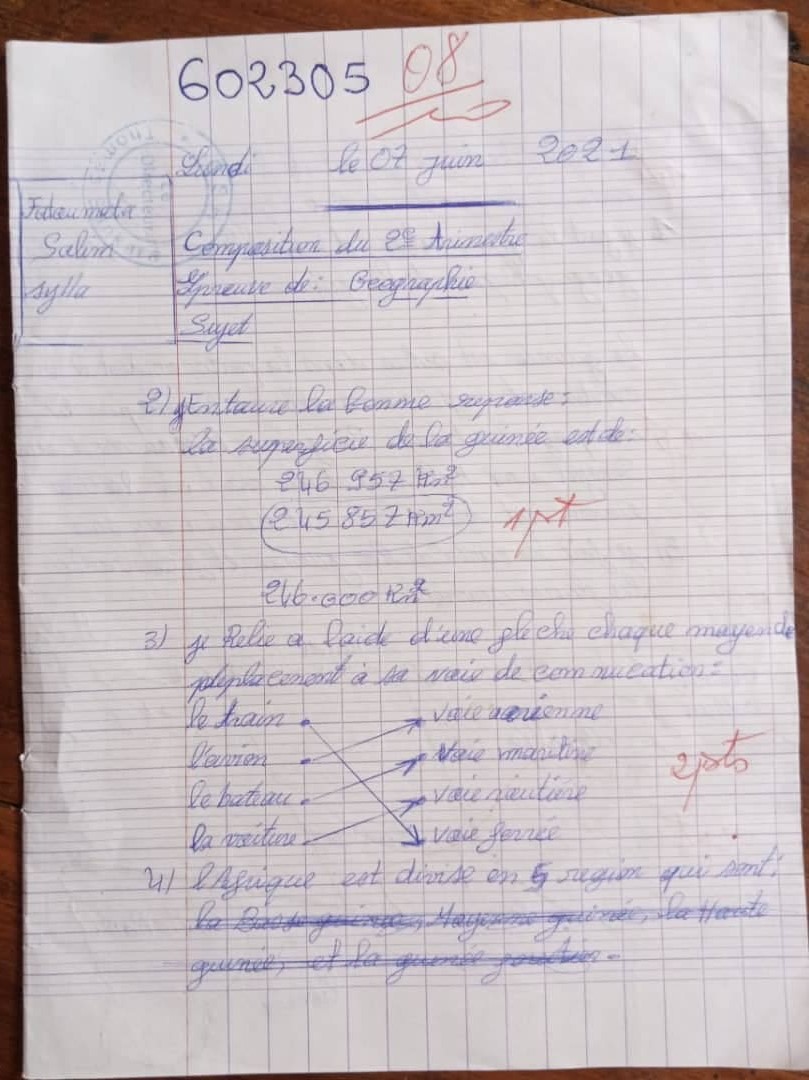 602305 08
Lundi le 07 juin 2021
Fatoumata
Salim
Sylla
Composition du 2e Trimestre
Epreuve de: Geographie
Sujet
2) j'Entoure la bonne reponse:
la superficie de la guinée est de:
246 957 Km²
245 857 Km² 1pt
246.000 Km²
3) je Relie a laide d'une fleche chaque moyen de
deplacement à sa voie de commucation:
le train voie aerienne
l'avion voie maritime
le bateau voie routière
la voiture voie ferrée
2pts
4) l'Afrique est divise en 5 region qui sont:
la Basse guinée, Moyenne guinée, la Haute
guinée, et la guinée